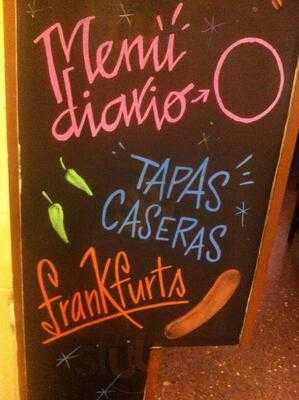 Menú
diario
TAPAS
CASERAS
frankfurts